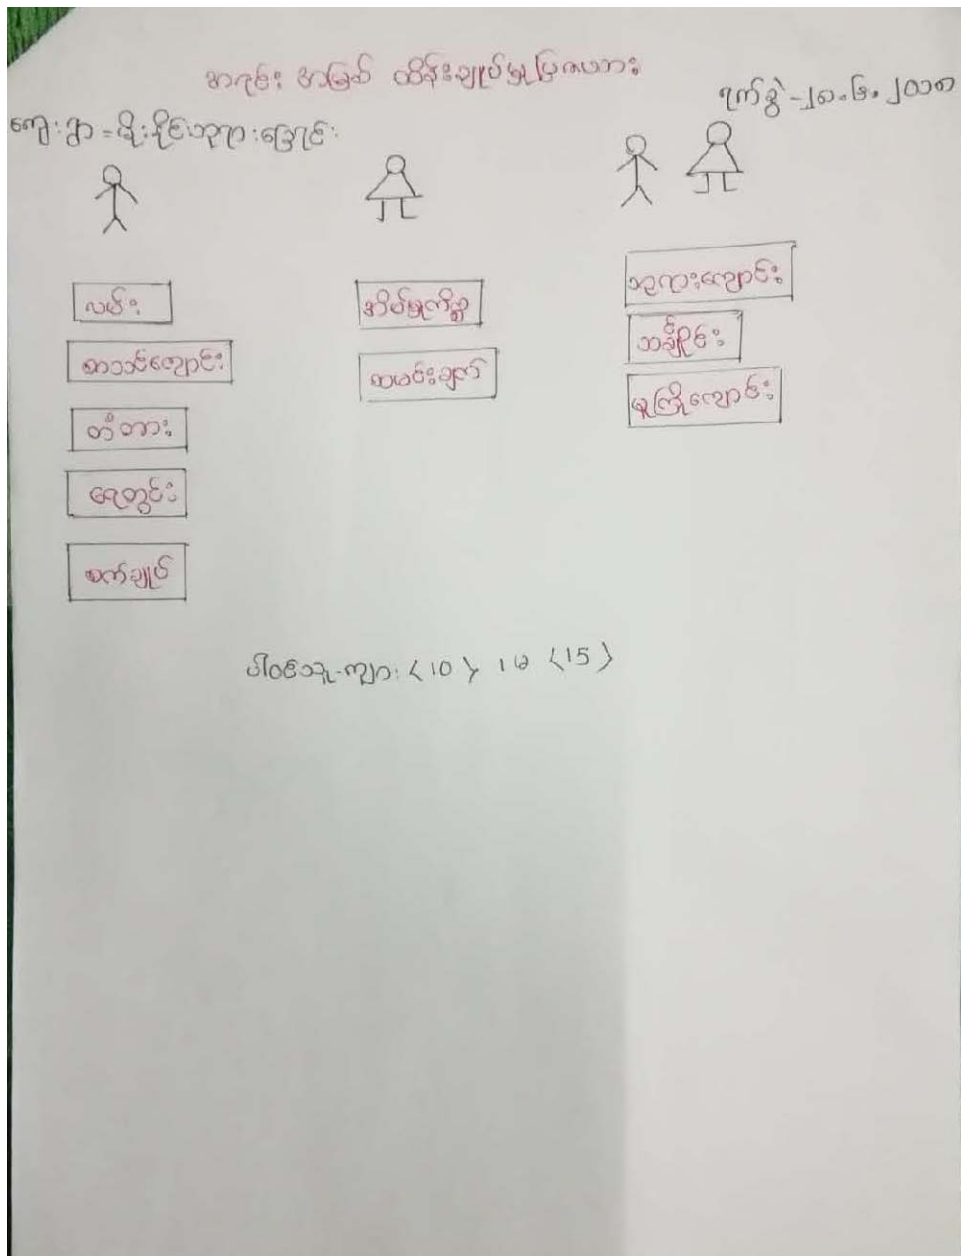 အရင်း အမြစ် ထိန်းချုပ်မှုပြဇယား
ရက်စွဲ -၂၈.၆.၂၀၁၈
ကျေးရွာ =
လမ်း
စာသင်ကျောင်း
တံတား
ရေတွင်း
စက်ချုပ်
အိမ်မှုကိစ္စ
ထမင်းချက်
ဘုရားကျောင်း
သင်္ချိုင်း
မူကြိုကျောင်း
ပါဝင်သူ-ကျား <10> ၊ မ <15>